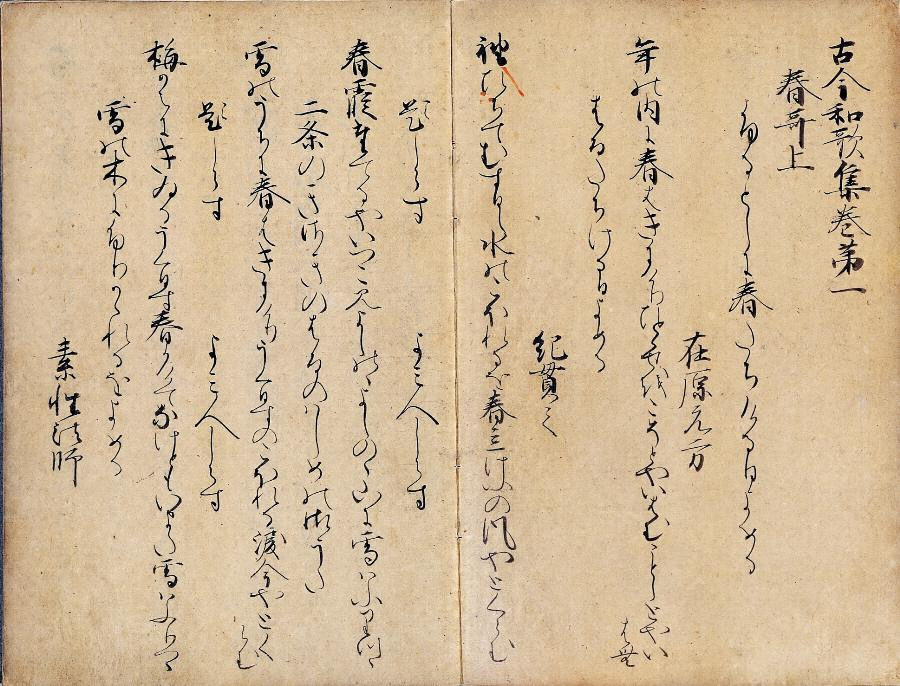 古今和歌集巻第一
春哥上
ふるとしに春たちける日よめる
在原元方
年の内に春はきにけりひとゝせをこそとやいはむことしとやい
はむ
はるたちける日よめる
紀貫之
袖ひちてむすひし水のこほれるを春立けふの風やとくらむ
題しらす よみ人しらす
春霞たてるやいつこみよしのゝよしのゝ山に雪はふりつゝ
二条のきさきのはるのはしめの御うた
雪のうちに春はきにけりうくひすのこほれる涙今やとく
らむ
題しらす よみ人しらす
梅かえにきゐるうくひす春かけてなけともいまた雪はふりつゝ
雪の木にふりかゝれるをよめる
素性法師